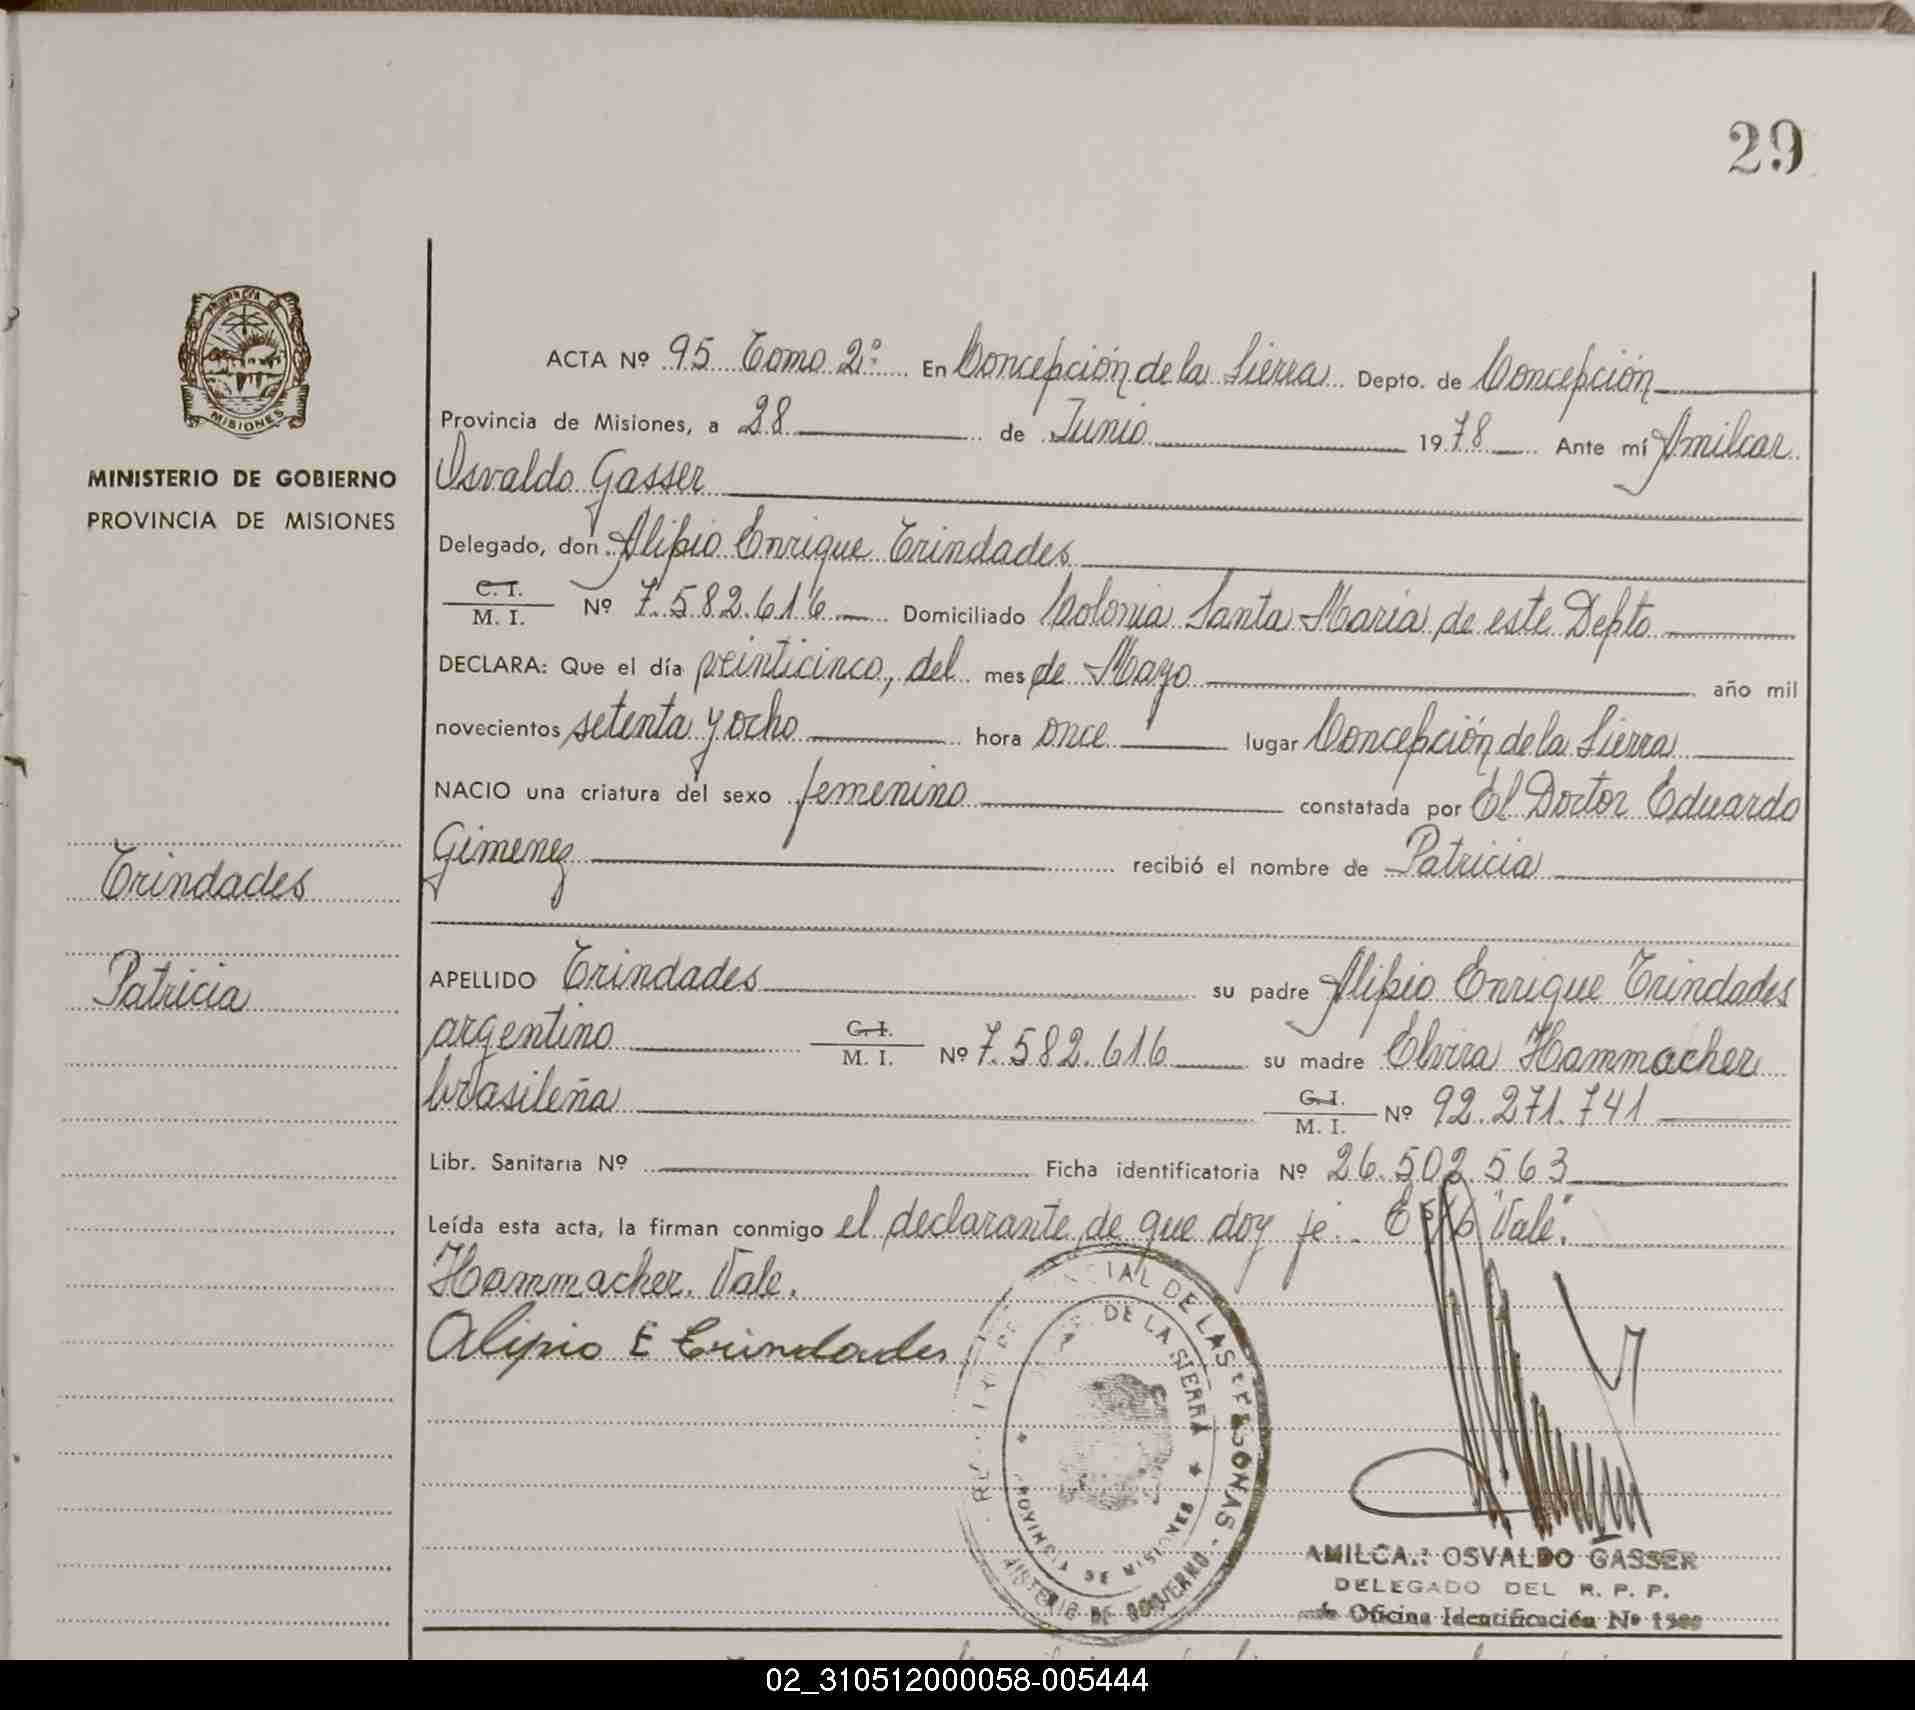 29
PROVINCIA
MISIONES
MINISTERIO DE GOBIERNO
PROVINCIA DE MISIONES
Trindades
Patricia
ACTA Nº 95 Tomo 2º En Concepción de la Sierra Depto. de Concepción
Provincia de Misiones, a 28 de Junio 1978 Ante mí Amilcar
Osvaldo Gasser
Delegado, don Alipio Enrique Trindades
C. I.
M. I. Nº 7.582.616 Domiciliado Colonia Santa María de este Depto
DECLARA: Que el día veinticinco, del mes de Mayo año mil
novecientos setenta y ocho hora once lugar Concepción de la Sierra
NACIO una criatura del sexo femenino constatada por El Doctor Eduardo
Gimenez recibió el nombre de Patricia
APELLIDO Trindades su padre Alipio Enrique Trindades
argentino C. I. M. I. Nº 7.582.616 su madre Elvira Hammacher
brasileña C. I. M. I. Nº 92.271.741
Libr. Sanitaria Nº Ficha identificatoria Nº 26.502.563
Leída esta acta, la firman conmigo el declarante, de que doy fe. "Vale".
Hammacher. Vale.
Alipio E Trindades
DE LAS PERSONAS
DE LA SIERRA
PROVINCIA DE MISIONES
DE GOBIERNO
OSVALDO GASSER
DELEGADO DEL R. P. P.
Oficina Identificación Nº
02_310512000058-005444